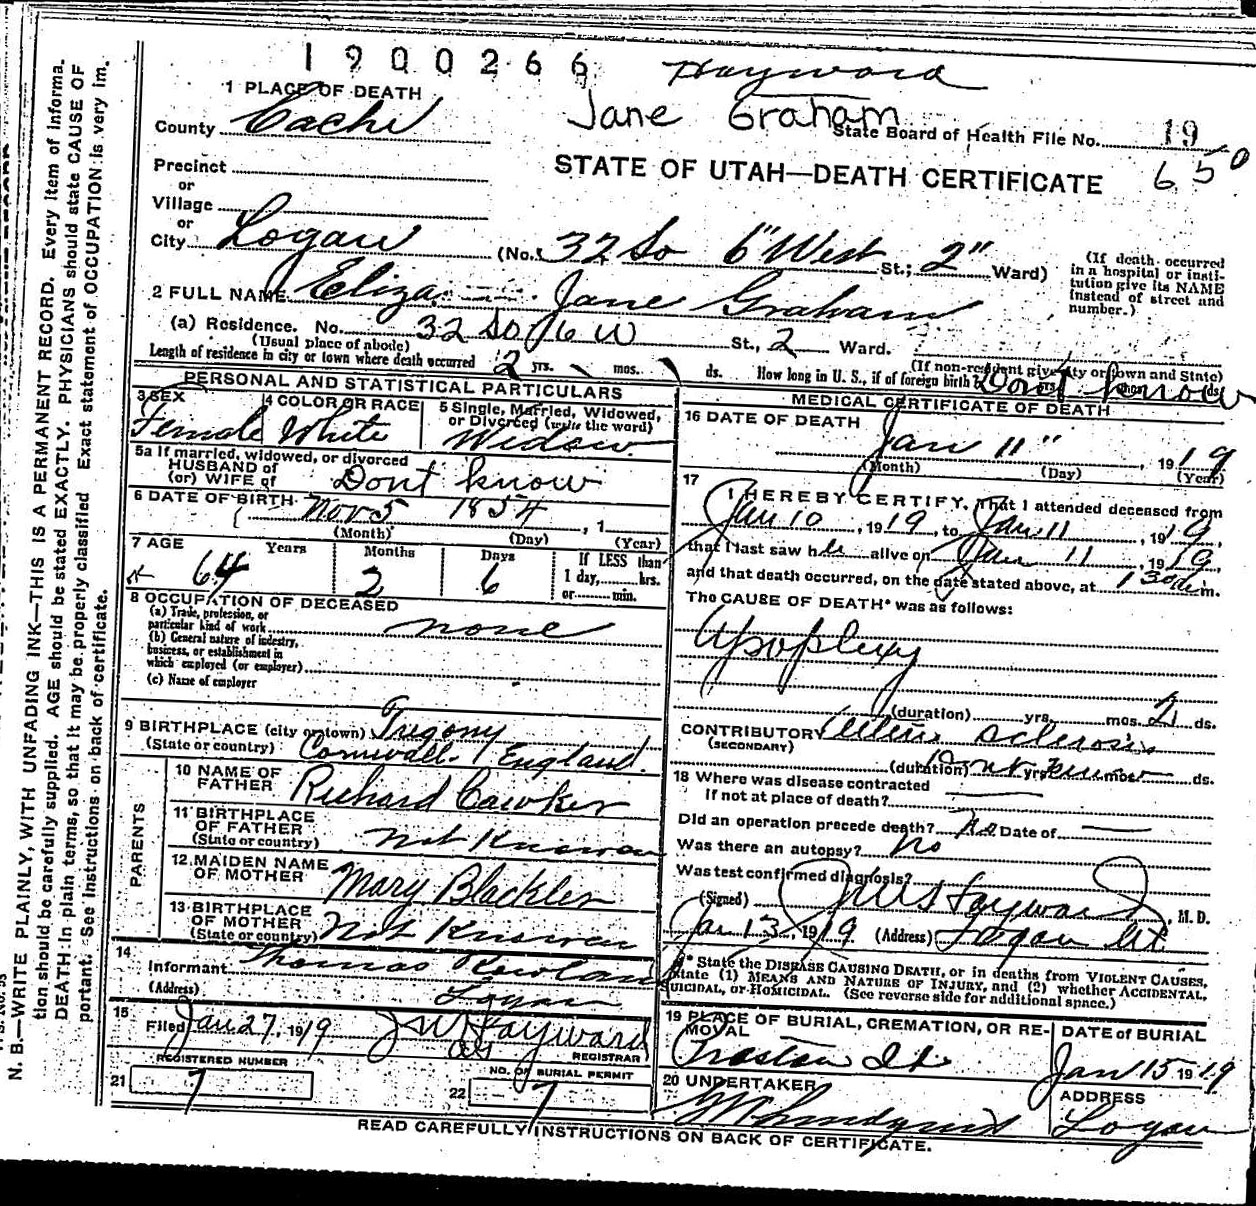 1900266
Hayward
Jane Graham
1 PLACE OF DEATH
County Cache
State Board of Health File No. 19
650
STATE OF UTAH—DEATH CERTIFICATE
Precinct
or
Village
or
City Logan (No. 32 So 6" West St.; 2" Ward)
(If death occurred in a hospital or institution give its NAME instead of street and number.)
2 FULL NAME Eliza Jane Graham
(a) Residence. No. 32 So 6 W St., 2 Ward.
(Usual place of abode) (If non-resident give city or town and State)
Length of residence in city or town where death occurred 2 yrs. mos. ds. How long in U. S., if of foreign birth? Dont know yrs. mos. ds.
PERSONAL AND STATISTICAL PARTICULARS
3 SEX Female
4 COLOR OR RACE White
5 Single, Married, Widowed, or Divorced (write the word) Widow
5a If married, widowed, or divorced
HUSBAND of
(or) WIFE of Dont know
6 DATE OF BIRTH Nov 5 1854, 1
(Month) (Day) (Year)
7 AGE 64 Years 2 Months 6 Days
If LESS than 1 day, hrs. or min.
8 OCCUPATION OF DECEASED
(a) Trade, profession, or particular kind of work none
(b) General nature of industry, business, or establishment in which employed (or employer)
(c) Name of employer
9 BIRTHPLACE (city or town) Tregony
(State or country) Cornwall. England.
PARENTS
10 NAME OF FATHER Richard Cawker
11 BIRTHPLACE OF FATHER (State or country) not Known
12 MAIDEN NAME OF MOTHER Mary Blackler
13 BIRTHPLACE OF MOTHER (State or country) Not Known
14
Informant Thomas Rowland
(Address) Logan
15
Filed Jan 27, 1919 J W Hayward
REGISTRAR
REGISTERED NUMBER
21 7
NO. OF BURIAL PERMIT
22 7
MEDICAL CERTIFICATE OF DEATH
16 DATE OF DEATH
Jan 11", 1919
(Month) (Day) (Year)
17
I HEREBY CERTIFY, That I attended deceased from
Jan 10, 1919, to Jan 11, 1919,
that I last saw h alive on Jan 11, 1919,
and that death occurred, on the date stated above, at 1 30 m.
The CAUSE OF DEATH* was as follows:
Apoplexy
(duration) yrs. mos. 2 ds.
CONTRIBUTORY sclerosis
(SECONDARY)
(duration) Dont know yrs. mos. ds.
18 Where was disease contracted
If not at place of death?
Did an operation precede death? No Date of
Was there an autopsy? No
Was test confirmed diagnosis?
(Signed) J W Hayward, M. D.
Jan 13, 1919 (Address) Logan Ut.
* State the DISEASE CAUSING DEATH, or in deaths from VIOLENT CAUSES,
state (1) MEANS AND NATURE OF INJURY, and (2) whether ACCIDENTAL,
SUICIDAL, or HOMICIDAL. (See reverse side for additional space.)
19 PLACE OF BURIAL, CREMATION, OR REMOVAL
Preston Id
DATE of BURIAL
Jan 15 1919
20 UNDERTAKER
Lundquist
ADDRESS
Logan
READ CAREFULLY INSTRUCTIONS ON BACK OF CERTIFICATE.
N. B.—WRITE PLAINLY, WITH UNFADING INK—THIS IS A PERMANENT RECORD. Every item of informa-
tion should be carefully supplied. AGE should be stated EXACTLY. PHYSICIANS should state CAUSE OF
DEATH in plain terms, so that it may be properly classified. Exact statement of OCCUPATION is very im-
portant. See instructions on back of certificate.